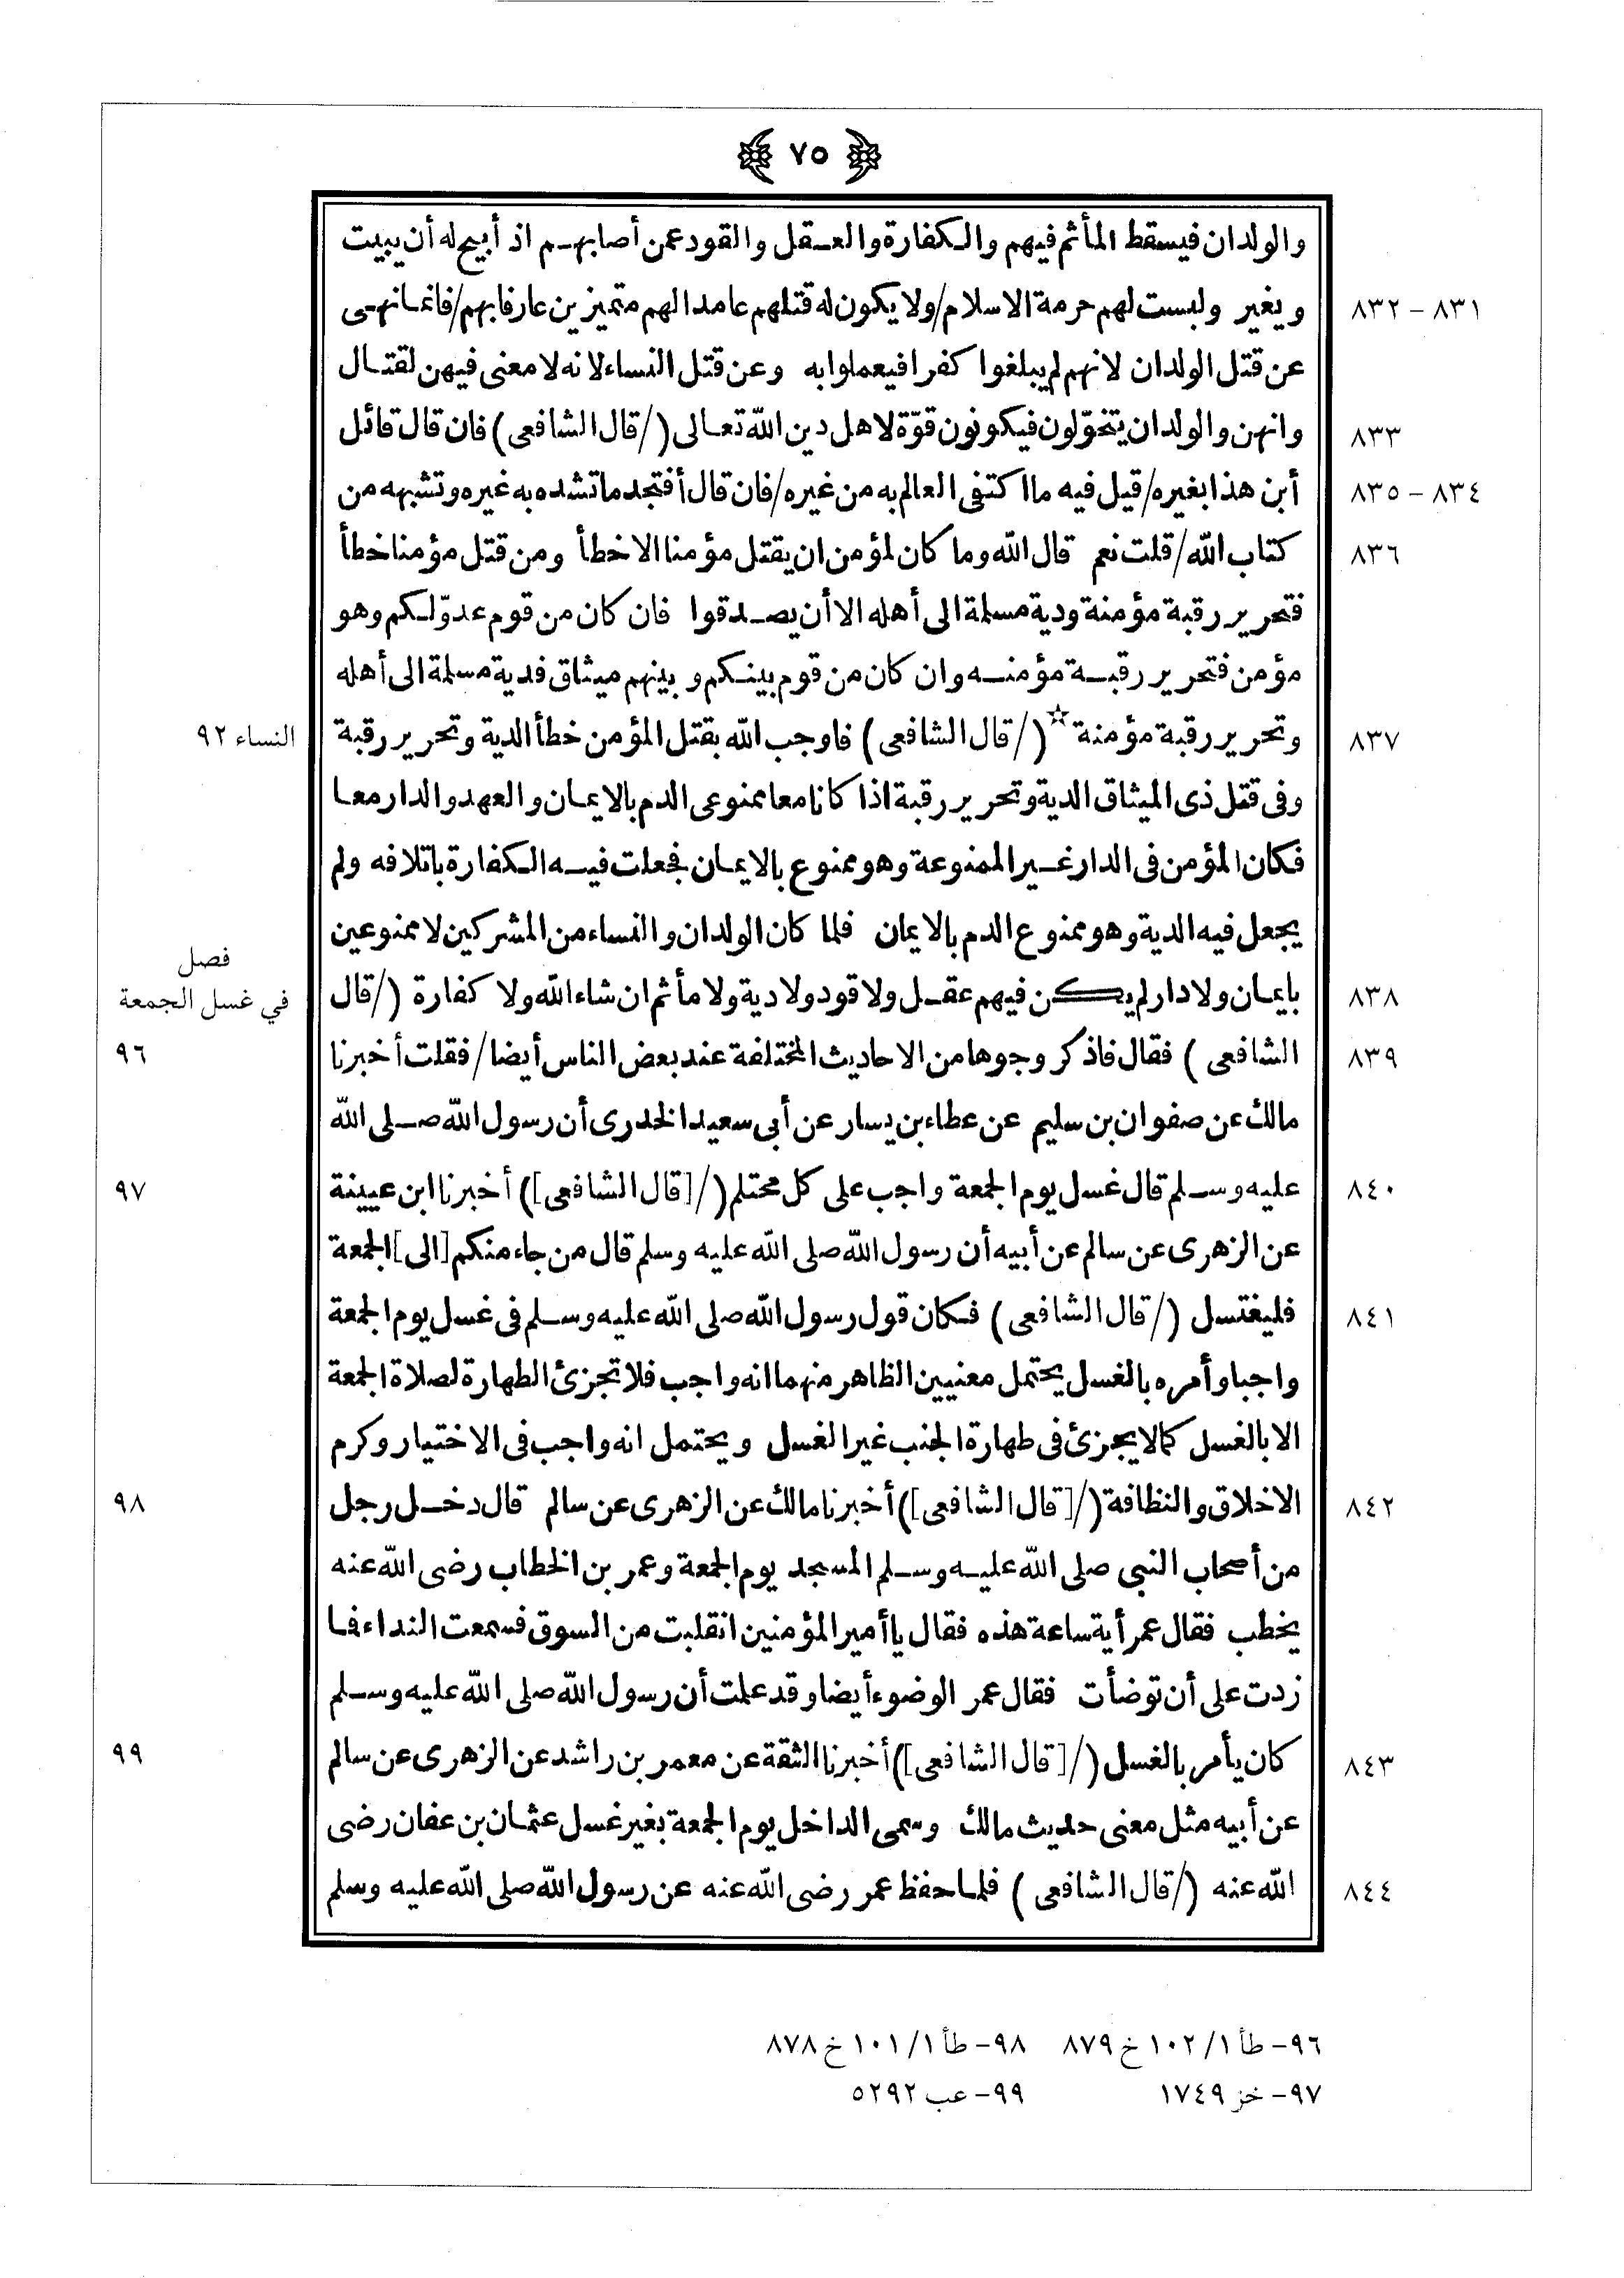 ٧٥
والولدان فيسقط المأثم فيهم والكفارة والعقل والقود عمن أصابهم اذ أبيح له أن يبيت
٨٣١ - ٨٣٢
ويغير وليست لهم حرمة الاسلام/ولا يكون له قتلهم عامدا لهم متميزين عارفا بهم/فانما نهى
عن قتل الولدان لانهم لم يبلغوا كفرا فيعملوا به وعن قتل النساء لانه لا معنى فيهن لقتال
٨٣٣
وانهن والولدان يتخوّلون فيكونون قوّة لاهل دين الله تعالى (/قال الشافعى) فان قال قائل
٨٣٤ - ٨٣٥
أبن هذا بغيره/قيل فيه ما اكتفى العالم به من غيره/فان قال أفتجد ما تشده به غيره وتشبهه من
٨٣٦
كتاب الله/قلت نعم قال الله وما كان لمؤمن ان يقتل مؤمنا الا خطأ ومن قتل مؤمنا خطأ
فتحرير رقبة مؤمنة ودية مسلمة الى أهله الا أن يصدقوا فان كان من قوم عدوّ لكم وهو
مؤمن فتحرير رقبة مؤمنه وان كان من قوم بينكم وبينهم ميثاق فدية مسلمة الى أهله
٨٣٧
وتحرير رقبة مؤمنة ☆ (/قال الشافعى) فاوجب الله بقتل المؤمن خطأ الدية وتحرير رقبة
النساء ٩٢
وفى قتل ذى الميثاق الدية وتحرير رقبة اذا كانا معا ممنوعى الدم بالايمان والعهد والدار معا
فكان المؤمن فى الدار غير الممنوعة وهو ممنوع بالايمان فجعلت فيه الكفارة باتلافه ولم
يجعل فيه الدية وهو ممنوع الدم بالايمان فلما كان الولدان والنساء من المشركين لا ممنوعين
فصل
في غسل الجمعة
٨٣٨
بايمان ولا دار لم يكن فيهم عقل ولا قود ولا دية ولا مأثم ان شاء الله ولا كفارة (/قال
٨٣٩
الشافعى) فقال فاذكر وجوها من الاحاديث المختلفة عند بعض الناس أيضا/فقلت أخبرنا
٩٦
مالك عن صفوان بن سليم عن عطاء بن يسار عن أبى سعيد الخدرى أن رسول الله صلى الله
٨٤٠
عليه وسلم قال غسل يوم الجمعة واجب على كل محتلم (/[قال الشافعى]) أخبرنا ابن عيينة
٩٧
عن الزهرى عن سالم عن أبيه أن رسول الله صلى الله عليه وسلم قال من جاء منكم [الى] الجمعة
٨٤١
فليغتسل (/قال الشافعى) فكان قول رسول الله صلى الله عليه وسلم فى غسل يوم الجمعة
واجبا وأمره بالغسل يحتمل معنيين الظاهر منهما انه واجب فلا تجزئ الطهارة لصلاة الجمعة
الا بالغسل كما لا يجزئ فى طهارة الجنب غير الغسل ويحتمل انه واجب فى الاختيار وكرم
٨٤٢
الاخلاق والنظافة (/[قال الشافعى]) أخبرنا مالك عن الزهرى عن سالم قال دخل رجل
٩٨
من أصحاب النبى صلى الله عليه وسلم المسجد يوم الجمعة وعمر بن الخطاب رضى الله عنه
يخطب فقال عمر أية ساعة هذه فقال يا أمير المؤمنين انقلبت من السوق فسمعت النداء فما
زدت على أن توضأت فقال عمر الوضوء أيضا وقد علمت أن رسول الله صلى الله عليه وسلم
٨٤٣
كان يأمر بالغسل (/[قال الشافعى]) أخبرنا الثقة عن معمر بن راشد عن الزهرى عن سالم
٩٩
عن أبيه مثل معنى حديث مالك وسمى الداخل يوم الجمعة بغير غسل عثمان بن عفان رضى
٨٤٤
الله عنه (/قال الشافعى) فلما حفظ عمر رضى الله عنه عن رسول الله صلى الله عليه وسلم
٩٦- طأ ١/ ١٠٢ خ ٨٧٩ ٩٨- طأ ١/ ١٠١ خ ٨٧٨
٩٧- خز ١٧٤٩ ٩٩- عب ٥٢٩٢